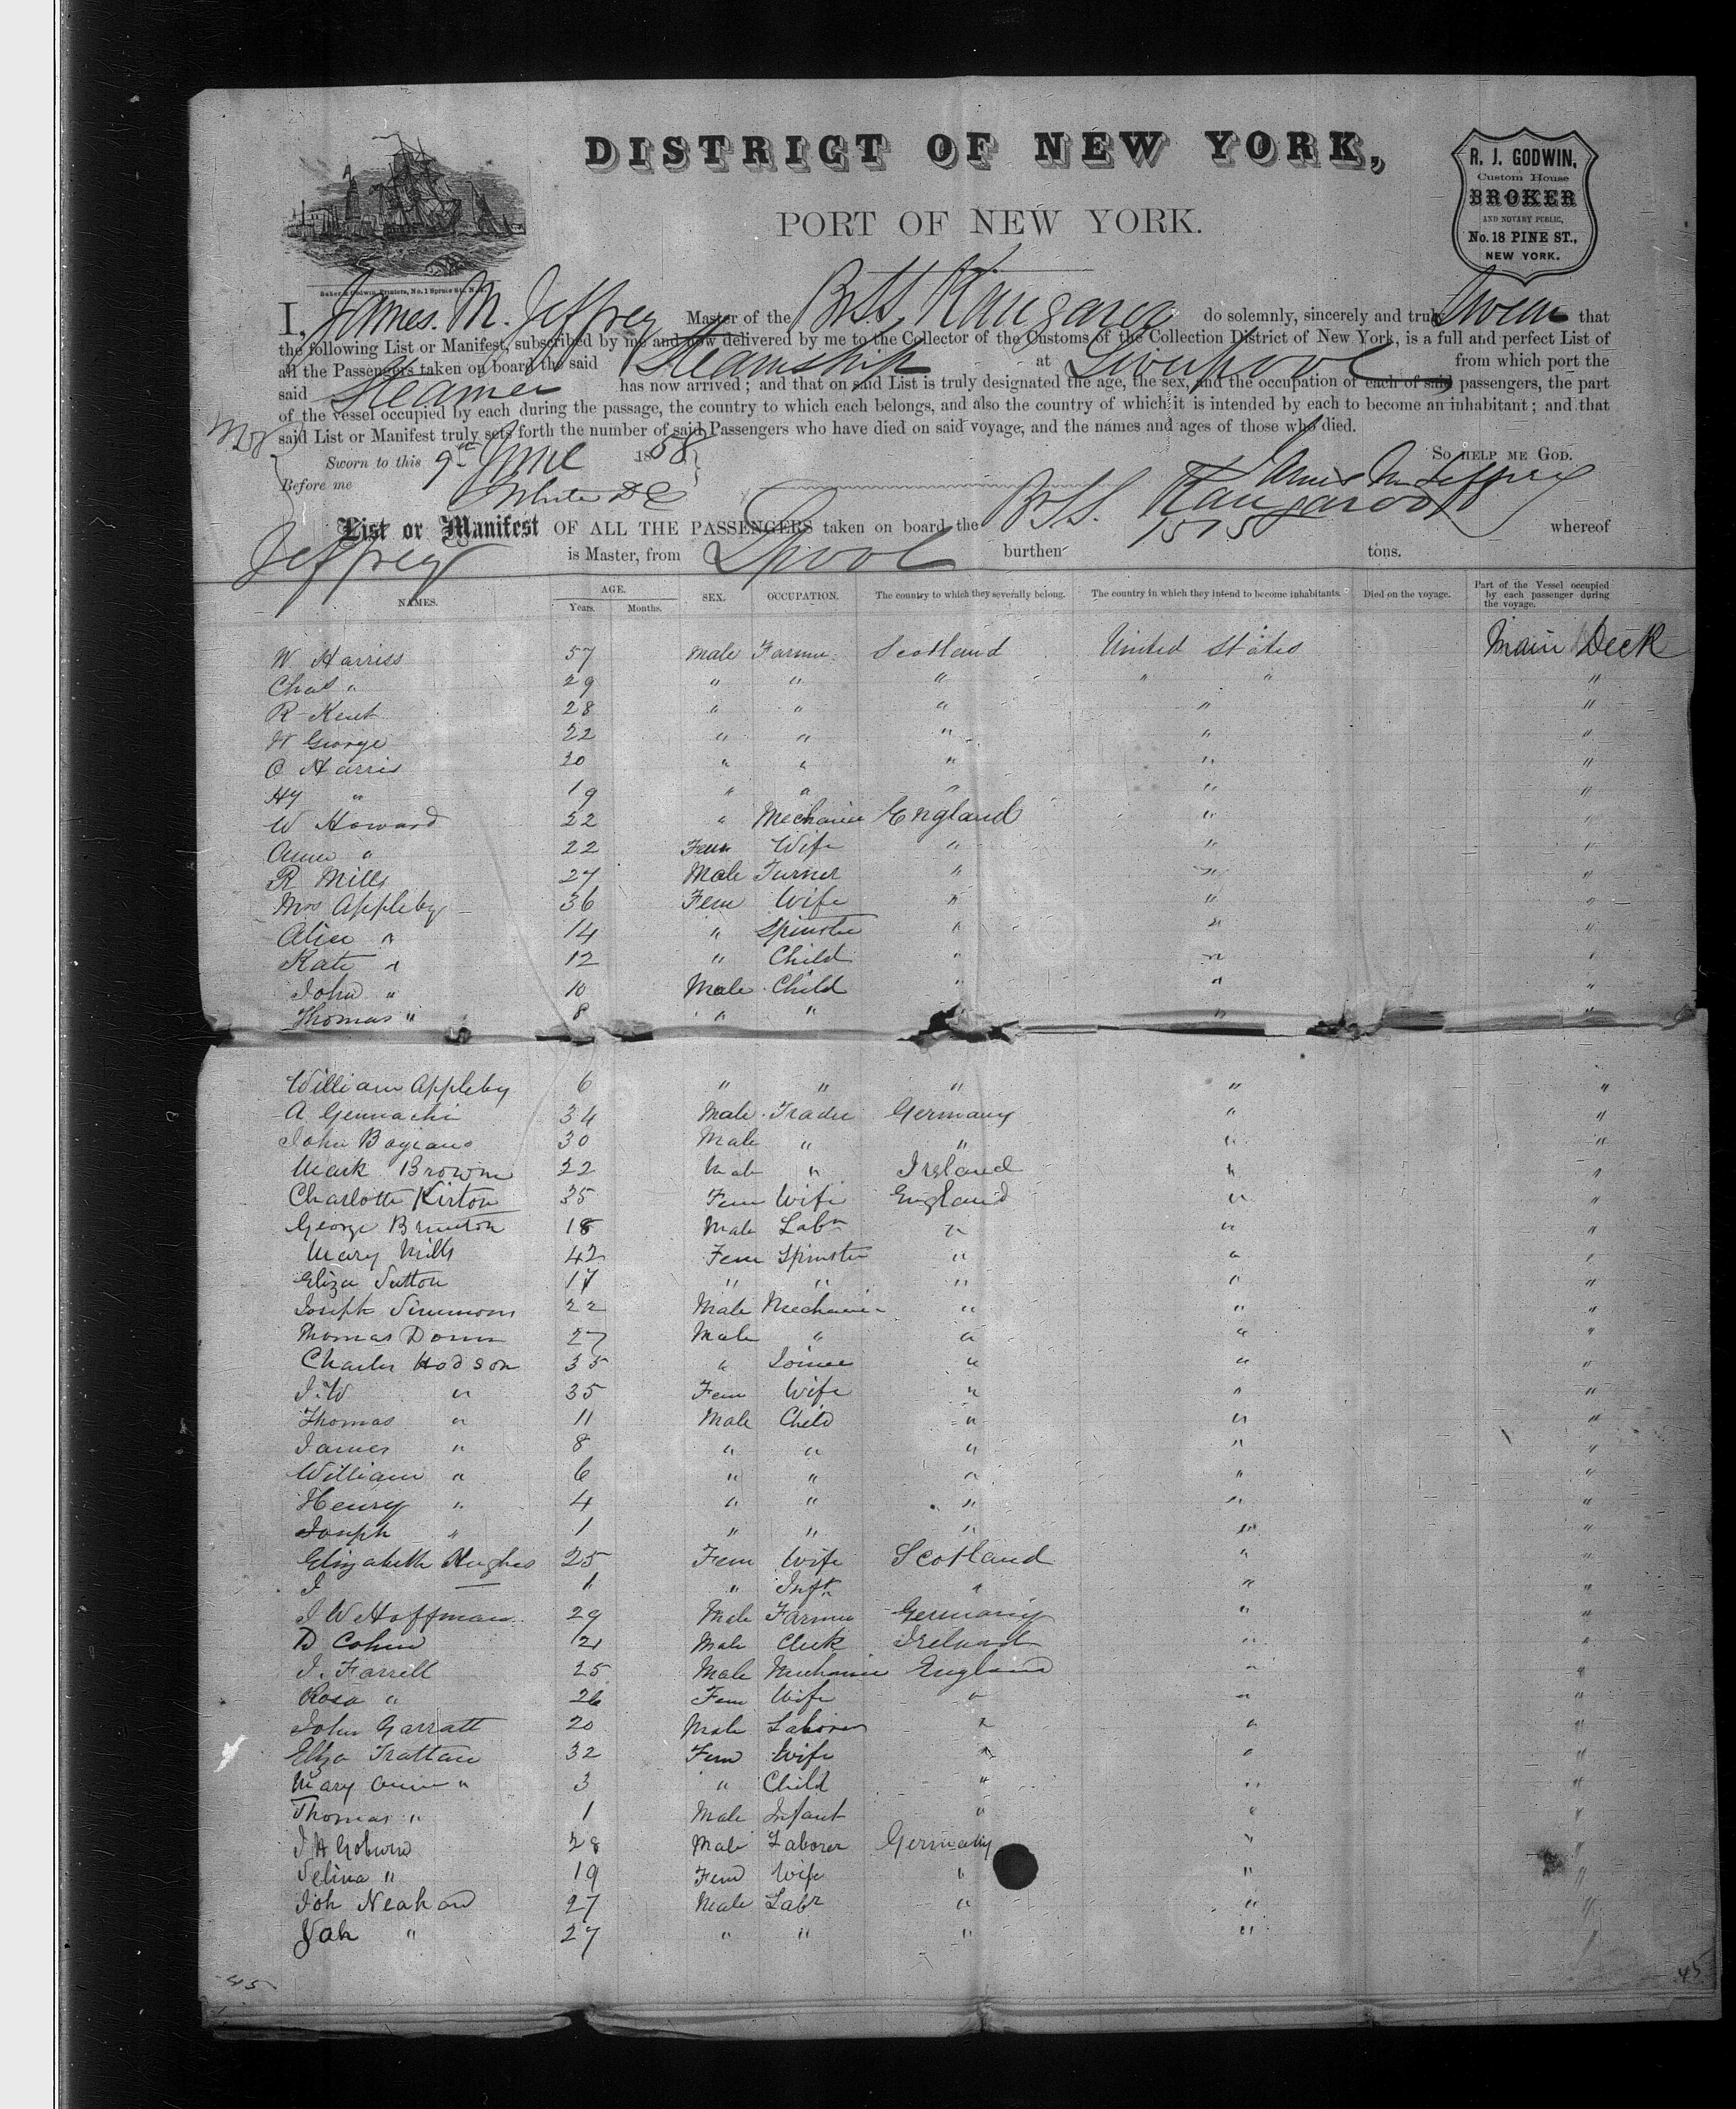 DISTRICT OF NEW YORK,
PORT OF NEW YORK.
R. J. GODWIN,
Custom House
BROKER
AND NOTARY PUBLIC,
No. 18 PINE ST.,
NEW YORK.
Baker & Godwin, Printers, No. 1 Spruce St., N.Y.
I, James. M. Jeffrey Master of the Br SS Kangaroo do solemnly, sincerely and truly Swear that
the following List or Manifest, subscribed by me and now delivered by me to the Collector of the Customs of the Collection District of New York, is a full and perfect List of
all the Passengers taken on board the said Steamship at Liverpool from which port the
said Steamer has now arrived; and that on said List is truly designated the age, the sex, and the occupation of each of said passengers, the part
of the vessel occupied by each during the passage, the country to which each belongs, and also the country of which it is intended by each to become an inhabitant; and that
said List or Manifest truly sets forth the number of said Passengers who have died on said voyage, and the names and ages of those who died.
Sworn to this 9th June 1858 So HELP ME GOD.
Before me White D C James M Jeffrey
List or Manifest OF ALL THE PASSENGERS taken on board the Br SS. Kangaroo whereof
Jeffrey is Master, from Lpool burthen 1575 tons.
NAMES. AGE. SEX. OCCUPATION. The country to which they severally belong. The country in which they intend to become inhabitants. Died on the voyage. Part of the Vessel occupied by each passenger during the voyage.
Years. Months.
W Harriss 57 Male Farmer Scotland United States Main Deck
Chas " 29 " " " " " "
R Kent 28 " " " " "
H George 22 " " " " "
C Harris 20 " " " " "
Hy " 19 " " " " "
W Howard 22 " Mechanic England " "
Anne " 22 Fem Wife " " "
R Mills 27 Male Turner " " "
Mrs Appleby 36 Fem Wife " " "
Alice " 14 " Spinster " " "
Kate " 12 " Child " " "
John " 10 Male Child " " "
Thomas " 8 " " " "
William Appleby 6 " " " " "
A 34 Male Trader Germany " "
John 30 Male " " " "
Mark Browne 22 Male " Ireland " "
Charlotte Kirton 35 Fem Wife England " "
George Brunton 18 Male Labr " " "
Mary Mills 42 Fem Spinster " " "
Eliza Sutton 17 " " " " "
Joseph Simmons 22 Male Mechanic " " "
Thomas Donn 27 Male " " " "
Charles Hodson 35 " Joiner " " "
J. W " 35 Fem Wife " " "
Thomas " 11 Male Child " " "
James " 8 " " " " "
William " 6 " " " " "
Henry " 4 " " " " "
Joseph " 1 " " " " "
Elizabeth Hughes 25 Fem Wife Scotland " "
J — 1 " Inft " " "
J W Hoffman 29 Male Farmer Germany " "
D Cohen 21 Male Clerk Ireland " "
J. Farrell 25 Male Mechanic England " "
Rosa " 26 Fem Wife " " "
John Garratt 20 Male Laborer " " "
Eliza Trattan 32 Fem Wife " " "
Mary Ann " 3 " Child " " "
Thomas " 1 Male Infant " " "
J H Goburn 28 Male Laborer Germany " "
Selina " 19 Fem Wife " " "
Joh Neahan 27 Male Labr " " "
Jah " 27 " " " " "
45 45